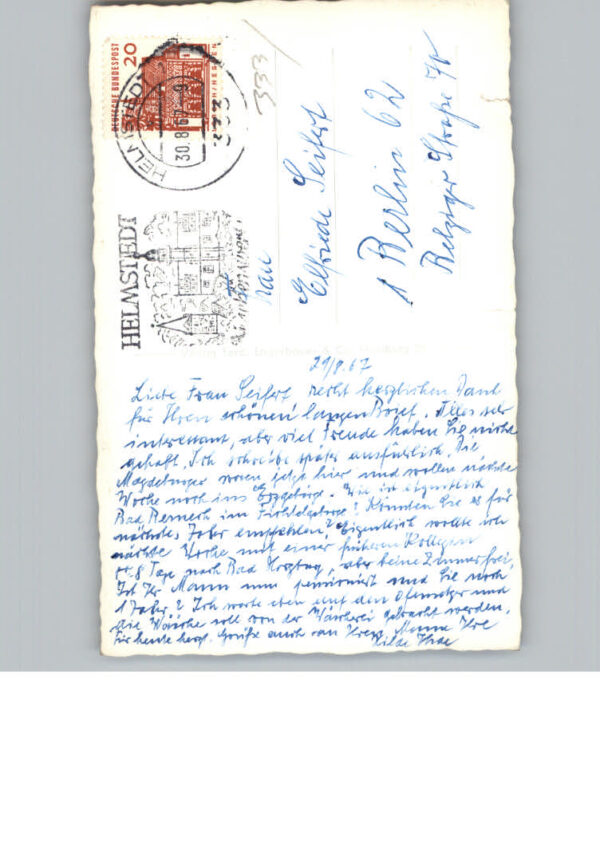 DEUTSCHE BUNDESPOST
20
HELMSTEDT
30.8.67
333
333
HELMSTEDT
Frau
Elfriede Seifert
1 Berlin 62
Belziger Straße 70
29/8.67
Liebe Frau Seifert recht herzlichen Dank
für Ihren schönen langen Brief. Alles sehr
interessant, aber viel Freude haben Sie nicht
gehabt. Ich schreibe später ausführlich. Die
Magdeburger waren jetzt hier und wollen nächste
Woche noch ins Erzgebirge. Wie ist eigentlich
Bad Berneck im Fichtelgebirge? Könnten Sie es für
nächstes Jahr empfehlen? Eigentlich wollte ich
nächste Woche mit einer früheren Kollegin
8 Tage nach Bad Harzburg, aber keine Zimmer frei.
Ist Ihr Mann nun pensioniert und Sie noch
1 Jahr? Ich warte eben auf den Ofensetzer und
die Wäsche soll von der Wäscherei gebracht werden.
Für heute herzl. Grüße auch an Ihren Mann Ihre
Hilde